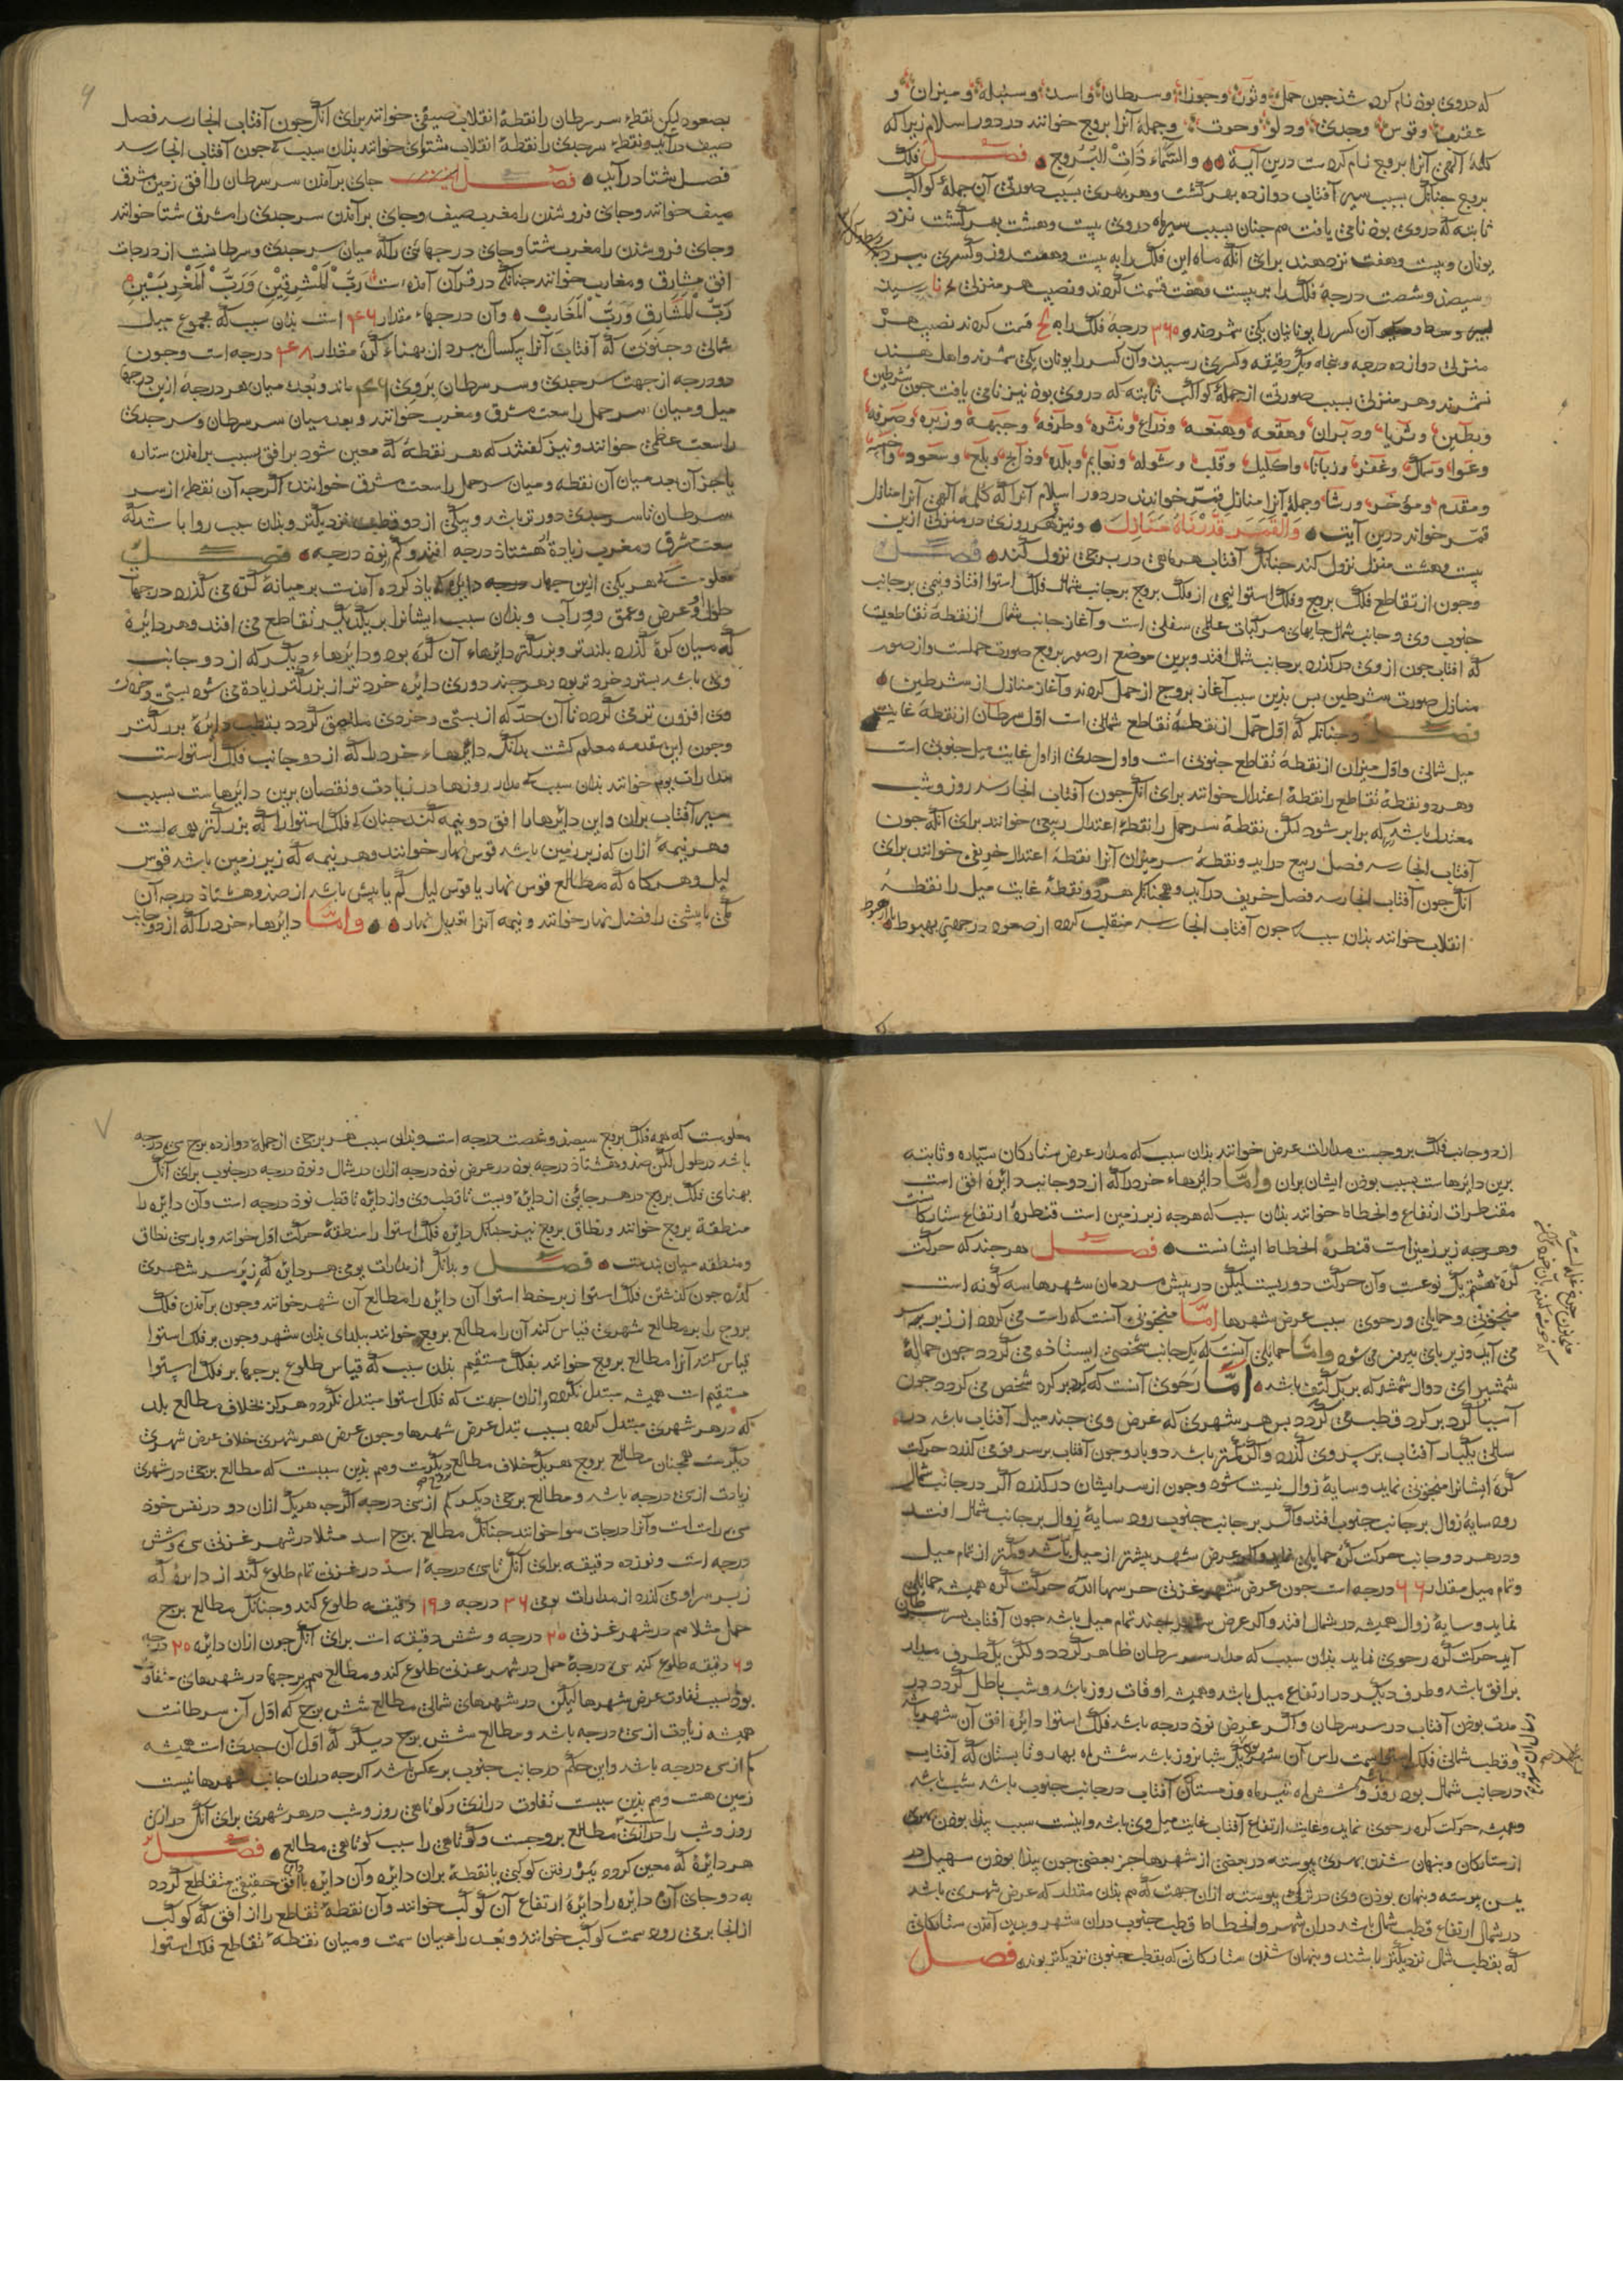 که در وی بوذ نام کرده شذ جون حمل و ثور و جوزا و سرطان و اسد و سنبله و میزان و
عقرب و قوس و جدی و دلو و حوت و جملۀ آنرا بروج خوانند در دور اسلام زیرا که
کلمۀ آلهی آنرا بروج نام کردست درین آیة والسَّماء ذاتِ البُروج فصل فلک
بروج جنانک بسبب سیر آفتاب دوازده بهر گشت و هر بهری بسبب صورتی آن جملۀ کواکب
ثابته که در وی بوذ نامی یافت هم جنان بسبب سیر ماه در وی بیست و هشت بهر گشت نزد
یونان و بیست و هفت نزد هند برای آنکه ماه این فلک را به بیست و هفت روز و کسری ببرد
و سیصذ و شصت درجۀ فلک را بر بیست و هفت قسمت کردند و نصیب هر منزلی رسید
آن کسر را یونانیان یکی شمردند و ۳۶۰ درجۀ فلک را به قسمت کردند نصیب هر
منزلی دوازده درجه و پنجاه و یک دقیقه و کسری رسید و آن کسر را یونان یکی شمرند و اهل هند
نشمرند و هر منزلی بسبب صورتی از جملۀ کواکب ثابته که در وی بوذ نیز نامی یافت جون شرطین
و بطین و ثریا و دبران و هقعه و هنعه و ذراع و نثره و طرفه و جبهه و زبره و صرفه
و عوا و سماک و غفر و زبانا و اکلیل و قلب و شوله و نعایم و بلده و ذابح و بلع و سعود و اخبیه
و مقدم و مؤخر و رشا و جملۀ آنرا منازل قمر خواندند در دور اسلام آنرا که کلمۀ آلهی آنرا منازل
قمر خواند درین آیت وَالقَمَرَ قَدَّرْناهُ مَنازِلَ و نیز قمر هر روزی در منزلی ازین
بیست و هشت منزل نزول کند جنانک آفتاب هر ماهی در برجی نزول کند فصل
وجون از تقاطع فلک بروج و فلک استوا نیمی از فلک بروج بر جانب شمال فلک استوا افتاذ و نیمی بر جانب
جنوب وی و جانب شمال جایهای مرکبات عالم سفلی است و آغاز جانب شمال از نقطۀ تقاطعیست
که آفتاب جون از وی در گذرد بر جانب شمال افتد و برین موضع از صور بروج صورت حملست و از صور
منازل صورت شرطین بس بذین سبب آغاز بروج از حمل کردند و آغاز منازل از شرطین
فصل وجنانکه که اوّل حمل از نقطۀ تقاطع شمالی است اوّل سرطان از نقطۀ غایت
میل شمالی و اوّل میزان از نقطۀ تقاطع جنوبی است و اول جدی از اول غایت میل جنوبی است
و هر دو نقطۀ تقاطع را نقطۀ اعتدال خوانند برای آنک جون آفتاب انجا رسذ روز و شب
معتدل باشد که برابر شود لکن نقطۀ سر حمل را نقطۀ اعتدال ربیعی خوانند برای آنکه جون
آفتاب انجا رسد فصل ربیع در آید و نقطۀ سر میزان آنرا نقطۀ اعتدال خریفی خوانند برای
آنک جون آفتاب انجا رسد فصل خریف در آید و همجنانکه هر دو نقطۀ غایت میل را نقطۀ
انقلاب خوانند بذان سبب که جون آفتاب انجا رسد منقلب گردد از صعود در جهتی بهبوط
بصعود لیکن نقطۀ سر سرطان را نقطۀ انقلاب صیفی خوانند برای آنک جون آفتاب انجا رسد فصل
صیف در آید و نقطۀ سر جدی را نقطۀ انقلاب شتوی خوانند بذان سبب که جون آفتاب انجا رسد
فصل شتا در آید فصل جای بر آمذن سر سرطان را افق زمین مشرق
صیف خوانند و جای فرو شذن را مغرب صیف و جای بر آمذن سر جدی را مشرق شتا خوانند
و جای فرو شذن را مغرب شتا و جای درجهائی را که میان سر جدی و سرطانست از درجات
افق مشارق و مغارب خوانند جنانکه در قرآن آمذه است رَبُّ الْمَشْرِقَیْنِ وَرَبُّ الْمَغْرِبَیْنِ
رَبُّ الْمَشَارِقِ وَرَبُّ الْمَغَارِبِ و آن درجهاء مقدار ۴۶ است بذان سبب که مجموع میل
شمالی و جنوبی که آفتاب آنرا بیکسال ببرد از پهناء کره مقدار ۴۸ درجه است وجون
دو درجه از جهت سر جدی و سر سرطان برَوی ۴۶ ماند و بُعد میان هر درجۀ ازین درجها
میل و میان سر حمل را سعت مشرق و مغرب خوانند و بعد میان سر سرطان و سر جدی
را سعت عظمی خوانند و نیز گفتند که هر نقطۀ که معین شود بر افق بسبب برامذن ستاره
یا جز آن بعد میان آن نقطه و میان سر حمل را سعت مشرق خوانند اگرجه آن نقطه از سر
سرطان تا سر جدی دورتر باشد و بیکی از دو قطب نزدیکتر و بذان سبب روا باشد که
سعت مشرق و مغرب زیادۀ هشتاذ درجه افتد و کم نوذ درجه فصل
معلومست که هر یکی ازین جهار دایره که یاذ کرده آمذست بر میانۀ کره می گذرد در جهات
طول و عرض و عمق دور آب و بذان سبب ایشانرا بر یکدیگر تقاطع می افتد و هر دایرۀ
که میان کره گذرد بلندتر و بزرگتر دایرهاء آن کره بوذ و دایرهاء دیگر که از دو جانب
وی باشد بستر و خردتر بوذ و هر جند دوری دایره خردتر از بزرگتر زیادة می شود بستی و خردی
وی افزون تر می گردد تا آن حد که از بستی و خردی ملاصق گردد بقطب دایرۀ بزرگتر
وجون این مقدمه معلوم گشت بدانک دایرهاء خرد را که از دو جانب فلک استواست
مدارات یوم خوانند بذان سبب که مدار روزها در زیادت و نقصان برین دایرهاست بسبب
سیر آفتاب بران و این دایرها را افق دو نیمه کند جنان که فلک استوا را که بزرگتر همه است
و هر نیمۀ ازان که زبر زمین باشد قوس نهار خوانند و هر نیمه که زیر زمین باشد قوس
لیل و هرگاه که مطالع قوس نهار یا قوس لیل کم یا بیش باشد از صد و هشتاذ درجه آن
کمی یا بیشی را فضل نهار خوانند و نیمه آنرا تعدیل نهار وامّا دایرهاء خرد را که از دو جانب
از دو جانب فلک بروجست مدارات عرض خوانند بذان سبب که مدار عرض ستارکان سیّاره و ثابته
برین دایرهاست بسبب بوذن ایشان بران وامّا دایرهاء خرد را که از دو جانب دایرۀ افق است
مقنطرات ارتفاع و انحطاط خوانند بذان سبب که هرجه زبر زمین است قنطرۀ ارتفاع ستارکانست
و هرجه زیر زمین است قنطرۀ انحطاط ایشانست فصل هرجند که حرکت
کرۀ هشتم یک نوعست و آن حرکت دوریست لیکن در پیش مردمان شهرها سه گونه است
منجنونی و حمایلی و رحوی سبب عرض شهرها امّا منجنونی آنست که راست می گردد از زبر سر
می آید و زیر بای بیرون می شود وامّا حمایلی آنست که یک جانب شخصی ایستاده می گردد جون حمالۀ
شمشیر ای دوال شمشیر که بر یک کتف باشد امّا رحوی آنست که گرد بر گرد شخص می گردد جون
آسیا گرد بر گرد قطب می گردد بر هر شهری که عرض وی جند میل آفتاب باشد در
سالی یکبار آفتاب بر سر وی گذرد و اگر کمتر باشد دو بار وجون آفتاب بر سر قومی گذرد حرکت
کره ایشانرا منجنونی نماید و سایۀ زوال نیست شود وجون از سر ایشان در گذرد اگر در جانب شمال
روذ سایۀ زوال بر جانب جنوب افتد و اگر بر جانب جنوب روذ سایۀ زوال بر جانب شمال افتد
و در هر دو جانب حرکت کره حمایلی نماید و اگر عرض شهر بیشتر از میل باشد و کمتر از تمام میل
و تمام میل مقدار ۶۶ درجه است جون عرض شهر غزنی حرسها الله حرکت کره همیشه حمایلی
نماید و سایۀ زوال همیشه در شمال افتد و اگر عرض شهر جند تمام میل باشد جون آفتاب بسر سرطان
آید حرکت کره رحوی نماید بذان سبب که مدار سر سرطان ظاهر گردد و لکن یک طرف مدار
بر افق باشد و طرف دیگر در ارتفاع میل باشد و همیشه اوقات روز باشد و شب باطل گردد در
مدت بوذن آفتاب در سر سرطان و اگر عرض نوذ درجه باشد فلک استوا دایرۀ افق آن شهر باشد
و قطب شمالی فلک استوا سمت راس آن شهر و یک شبانروز باشد شش ماه بهار و تابستان که آفتاب
در جانب شمال بوذ روز و شش ماه تیر ماه و زمستان که آفتاب در جانب جنوب باشد شب باشد
و همیشه حرکت کره رحوی نماید و غایت ارتفاع آفتاب غایت میل وی باشد و اینست سبب پیذا بوذن بعضی
از ستارکان و پنهان شذن بعضی پیوسته در بعضی از شهرها جز بعضی جون پیذا بوذن سهیل در
یمن پیوسته و پنهان بوذن وی در ترک پیوسته ازان جهت که هم بذان مقدار که عرض شهری باشد
در شمال ارتفاع قطب شمال باشد دران شهر و انحطاط قطب جنوب دران شهر و پدید آمذن ستارکانی
که بقطب شمال نزدیکتر باشند و پنهان شذن ستارکانی که بقطب جنوب نزدیکتر بوند فصل
معلومست که همه فلک بروج سیصذ و شصت درجه است و بذان سبب هر برجی از جملۀ دوازده برج سی درجه
باشد در طول لکن صد و هشتاذ درجه بوذ در عرض نوذ درجه ازان در شمال و نوذ درجه در جنوب برای آنک
بهنای فلک بروج در هر جایی از دایرۀ ویست تا قطب وی و از دایره تا قطب نوذ درجه است و آن دایره را
منطقۀ بروج خوانند و نطاق بروج نیز جنانک دایرۀ فلک استوا را منطقۀ حرکت اوّل خوانند و بارسی نطاق
و منطقه میان بندست فصل و بدانک از مدارات یومی هر دایره که زبر سر شهری
گذرد جون گذشتن فلک استوا زبر خط استوا آن دایره را مطالع آن شهر خوانند وجون برآمذن فلک
بروج را بر مطالع شهری قیاس کند آن را مطالع بروج خوانند ببلدای بذان شهر وجون بر فلک استوا
قیاس کند آنرا مطالع بروج خوانند بفلک مستقیم بذان سبب که قیاس طلوع برجها بر فلک استوا
مستقیم است همیشه مبتدل نگردد ازان جهت که فلک استوا مبتدل نگردد هرگز بخلاف مطالع بلد
که در هر شهری مبتدل گردد بسبب تبدل عرض شهرها وجون عرض هر شهری خلاف عرض شهری
دیگرست همجنان مطالع بروج هر یک خلاف مطالع دیگرست و هم بذین سببست که مطالع برجی در شهری
زیادت از سی درجه باشد و مطالع برجی دیگر کم از سی درجه اگرجه هر یک ازان دو در نفس خوذ
سی راست است و آنرا درجات سوا خوانند جنانک مطالع برج اسد مثلا در شهر غزنی سی و شش
درجه است و نوزده دقیقه برای آنک تا سی درجۀ اسد در غزنی تمام طلوع کند از دایرۀ که
زبر سر او می گذرد از مدارات یومی ۳۶ درجه و ۱۹ دقیقه طلوع کند و جنانک مطالع برج
حمل مثلا هم در شهر غزنی ۲۰ درجه و شش دقیقه است برای آنک جون ازان دایره ۲۰ درجه
و ۶ دقیقه طلوع کند سی درجۀ حمل در شهر غزنی طلوع کند و مطالع هم برجها در شهرهای متفاوت
بوذ بسبب تفاوت عرض شهرها لیکن در شهرهای شمالی مطالع شش برج که اوّل آن سرطانست
همیشه زیادت از سی درجه باشد و مطالع شش برج دیگر که اوّل آن جدی است همیشه
کم از سی درجه باشد و این حکم در جانب جنوب بر عکس باشد اگرجه دران جانب شهرها نیست
زمین هست و هم بذین سببست تفاوت درازی و کوتاهی روز و شب در هر شهری برای آنک درازی
روز و شب را درازی مطالع بروجست و کوتاهی را سبب کوتاهی مطالع فصل
هر دایرۀ که معین گردد بکم رفتن کوکبی یا نقطۀ بران دایره و آن دایره با افق حقیقی متقاطع گردد
به دو جای آن دایره را دایرۀ ارتفاع آن کوکب خوانند و آن نقطۀ تقاطع را از افق که کوکب
از انجا بر می روذ سمت کوکب خوانند و بُعد را میان سمت و میان نقطۀ تقاطع فلک استوا